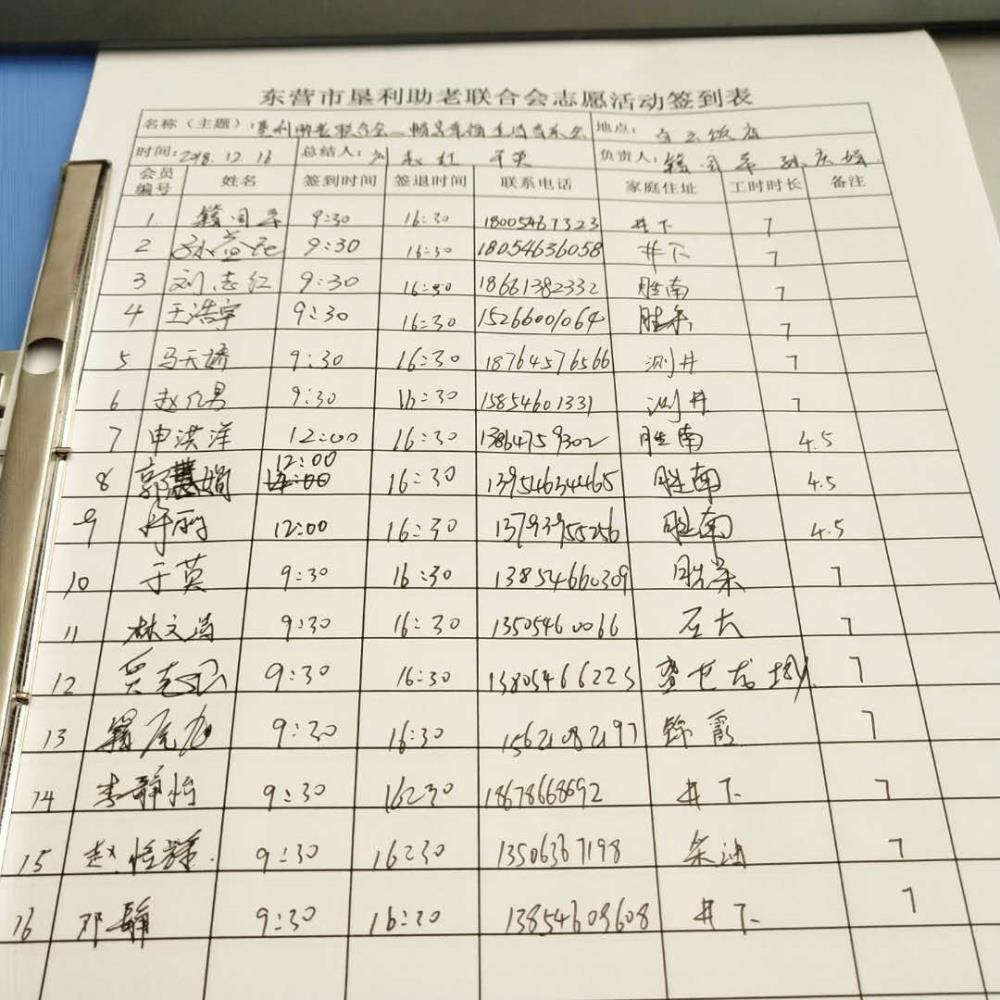 东营市垦利助老联合会志愿活动签到表
名称（主题）：垦利助老联合会 地点：白云饭店
时间：2018.12.16 总结人：刘志红 于英 负责人：
会员编号 姓名 签到时间 签退时间 联系电话 家庭住址 工时时长 备注
1. 9:30 16:30 18005467323 井下 7
2 9:30 16:30 18054636058 井下 7
3 刘志红 9:30 16:30 18661382332 胜南 7
4 王浩宇 9:30 16:30 15266001064 7
5 马天娇 9:30 16:30 18764576566 测井 7
6 赵亿男 9:30 16:30 15854601331 测井 7
7 申洪洋 12:00 16:30 13864759302 胜南 4.5
8 郭慧娟 12:00 16:30 13954634465 胜南 4.5
9 许丽 12:00 16:30 13793955256 胜南 4.5
10 于英 9:30 16:30 13854660309 7
11 林文涛 9:30 16:30 13505460066 石大 7
12 9:30 16:30 13805466223 7
13 9:30 16:30 15621082197 锦霞 7
14 李静怡 9:30 16:30 18678668692 井下 7
15 赵恒 9:30 16:30 13506367198 7
16 邓静 9:30 16:30 13854609608 井下 7